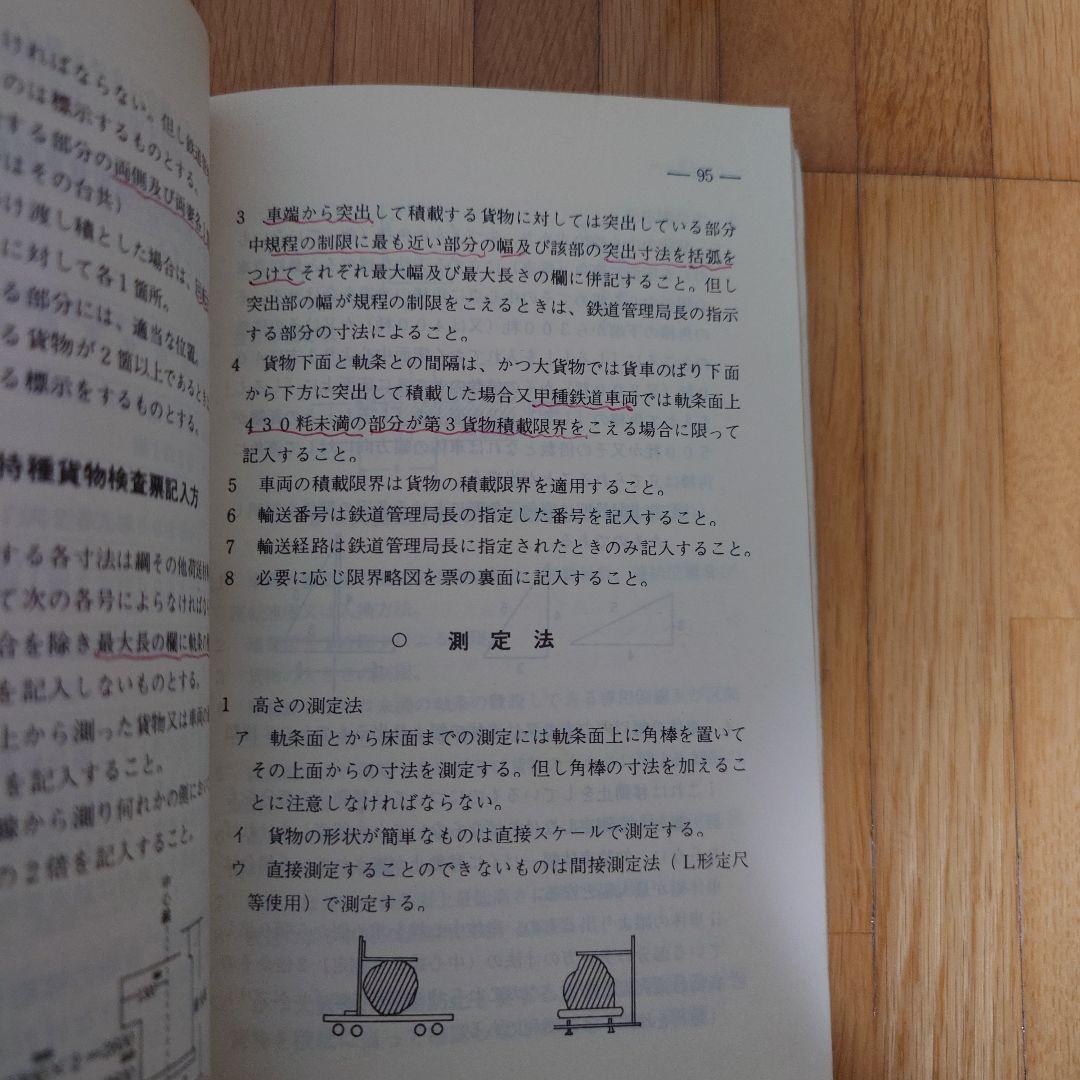 ければならない。但し鉄道
のは標示するものとする。
する部分の両側及び両妻各
はその台共）
け渡し積とした場合は、
に対して各1箇所。
る部分には、適当な位置。
る貨物が2箇以上であるとき
る標示をするものとする。
特種貨物検査票記入方
する各寸法は綱その他荷
て次の各号によらなければな
合を除き最大長の欄に軌条
を記入しないものとする。
上から測った貨物又は車両の
を記入すること。
線から測り何れかの側におい
の2倍を記入すること。
中心線
— 95 —
3 車端から突出して積載する貨物に対しては突出している部分
中規程の制限に最も近い部分の幅及び該部の突出寸法を括弧を
つけてそれぞれ最大幅及び最大長さの欄に併記すること。但し
突出部の幅が規程の制限をこえるときは、鉄道管理局長の指示
する部分の寸法によること。
4 貨物下面と軌条との間隔は、かつ大貨物では貨車のばり下面
から下方に突出して積載した場合又甲種鉄道車両では軌条面上
430粍未満の部分が第3貨物積載限界をこえる場合に限って
記入すること。
5 車両の積載限界は貨物の積載限界を適用すること。
6 輸送番号は鉄道管理局長の指定した番号を記入すること。
7 輸送経路は鉄道管理局長に指定されたときのみ記入すること。
8 必要に応じ限界略図を票の裏面に記入すること。
○ 測定法
1 高さの測定法
ア 軌条面とから床面までの測定には軌条面上に角棒を置いて
その上面からの寸法を測定する。但し角棒の寸法を加えるこ
とに注意しなければならない。
イ 貨物の形状が簡単なものは直接スケールで測定する。
ウ 直接測定することのできないものは間接測定法（L形定尺
等使用）で測定する。